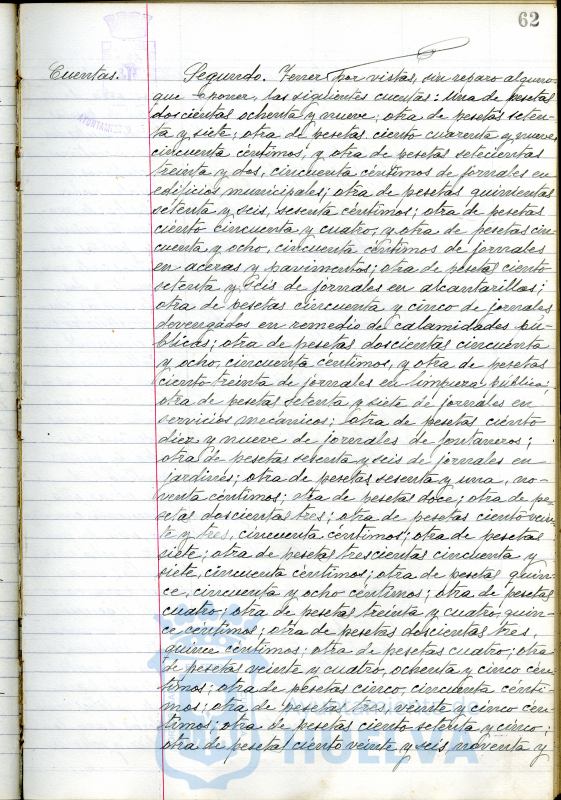 62
Cuentas. Segundo. Tener por vistas, sin reparo alguno
que oponer, las siguientes cuentas: Una de pesetas
doscientas ochenta y nueve; otra de pesetas seten-
ta y siete; otra de pesetas ciento cuarenta y nueve
cincuenta céntimos, y otra de pesetas setecientas
treinta y dos, cincuenta céntimos de jornales en
edificios municipales; otra de pesetas quinientas
setenta y seis, sesenta céntimos; otra de pesetas
ciento cincuenta y cuatro, y otra de pesetas cin
cuenta y ocho, cincuenta céntimos de jornales
en aceras y pavimentos; otra de pesetas ciento
setenta y seis de jornales en alcantarillas;
otra de pesetas cincuenta y cinco de jornales
devengados en remedio de calamidades pú-
blicas; otra de pesetas doscientas cincuenta
y ocho, cincuenta céntimos, y otra de pesetas
ciento treinta de jornales en limpieza pública;
otra de pesetas setenta y siete de jornales en
servicios mecánicos; otra de pesetas ciento
diez y nueve de jornales de fontaneros;
otra de pesetas sesenta y seis de jornales en
jardines; otra de pesetas sesenta y una, no-
venta céntimos; otra de pesetas doce; otra de pe-
setas doscientas tres; otra de pesetas ciento vein-
te y tres, cincuenta céntimos; otra de pesetas
siete; otra de pesetas trescientas cincuenta y
siete, cincuenta céntimos; otra de pesetas quin-
ce, cincuenta y ocho céntimos; otra de pesetas
cuatro; otra de pesetas treinta y cuatro, quin-
ce céntimos; otra de pesetas doscientas tres,
quince céntimos; otra de pesetas cuatro; otra
de pesetas veinte y cuatro, ochenta y cinco cén-
timos; otra de pesetas cinco, cincuenta cénti-
mos; otra de pesetas tres, veinte y cinco cén-
timos; otra de pesetas ciento setenta y cinco;
otra de pesetas ciento veinte y seis noventa y
HUELVA